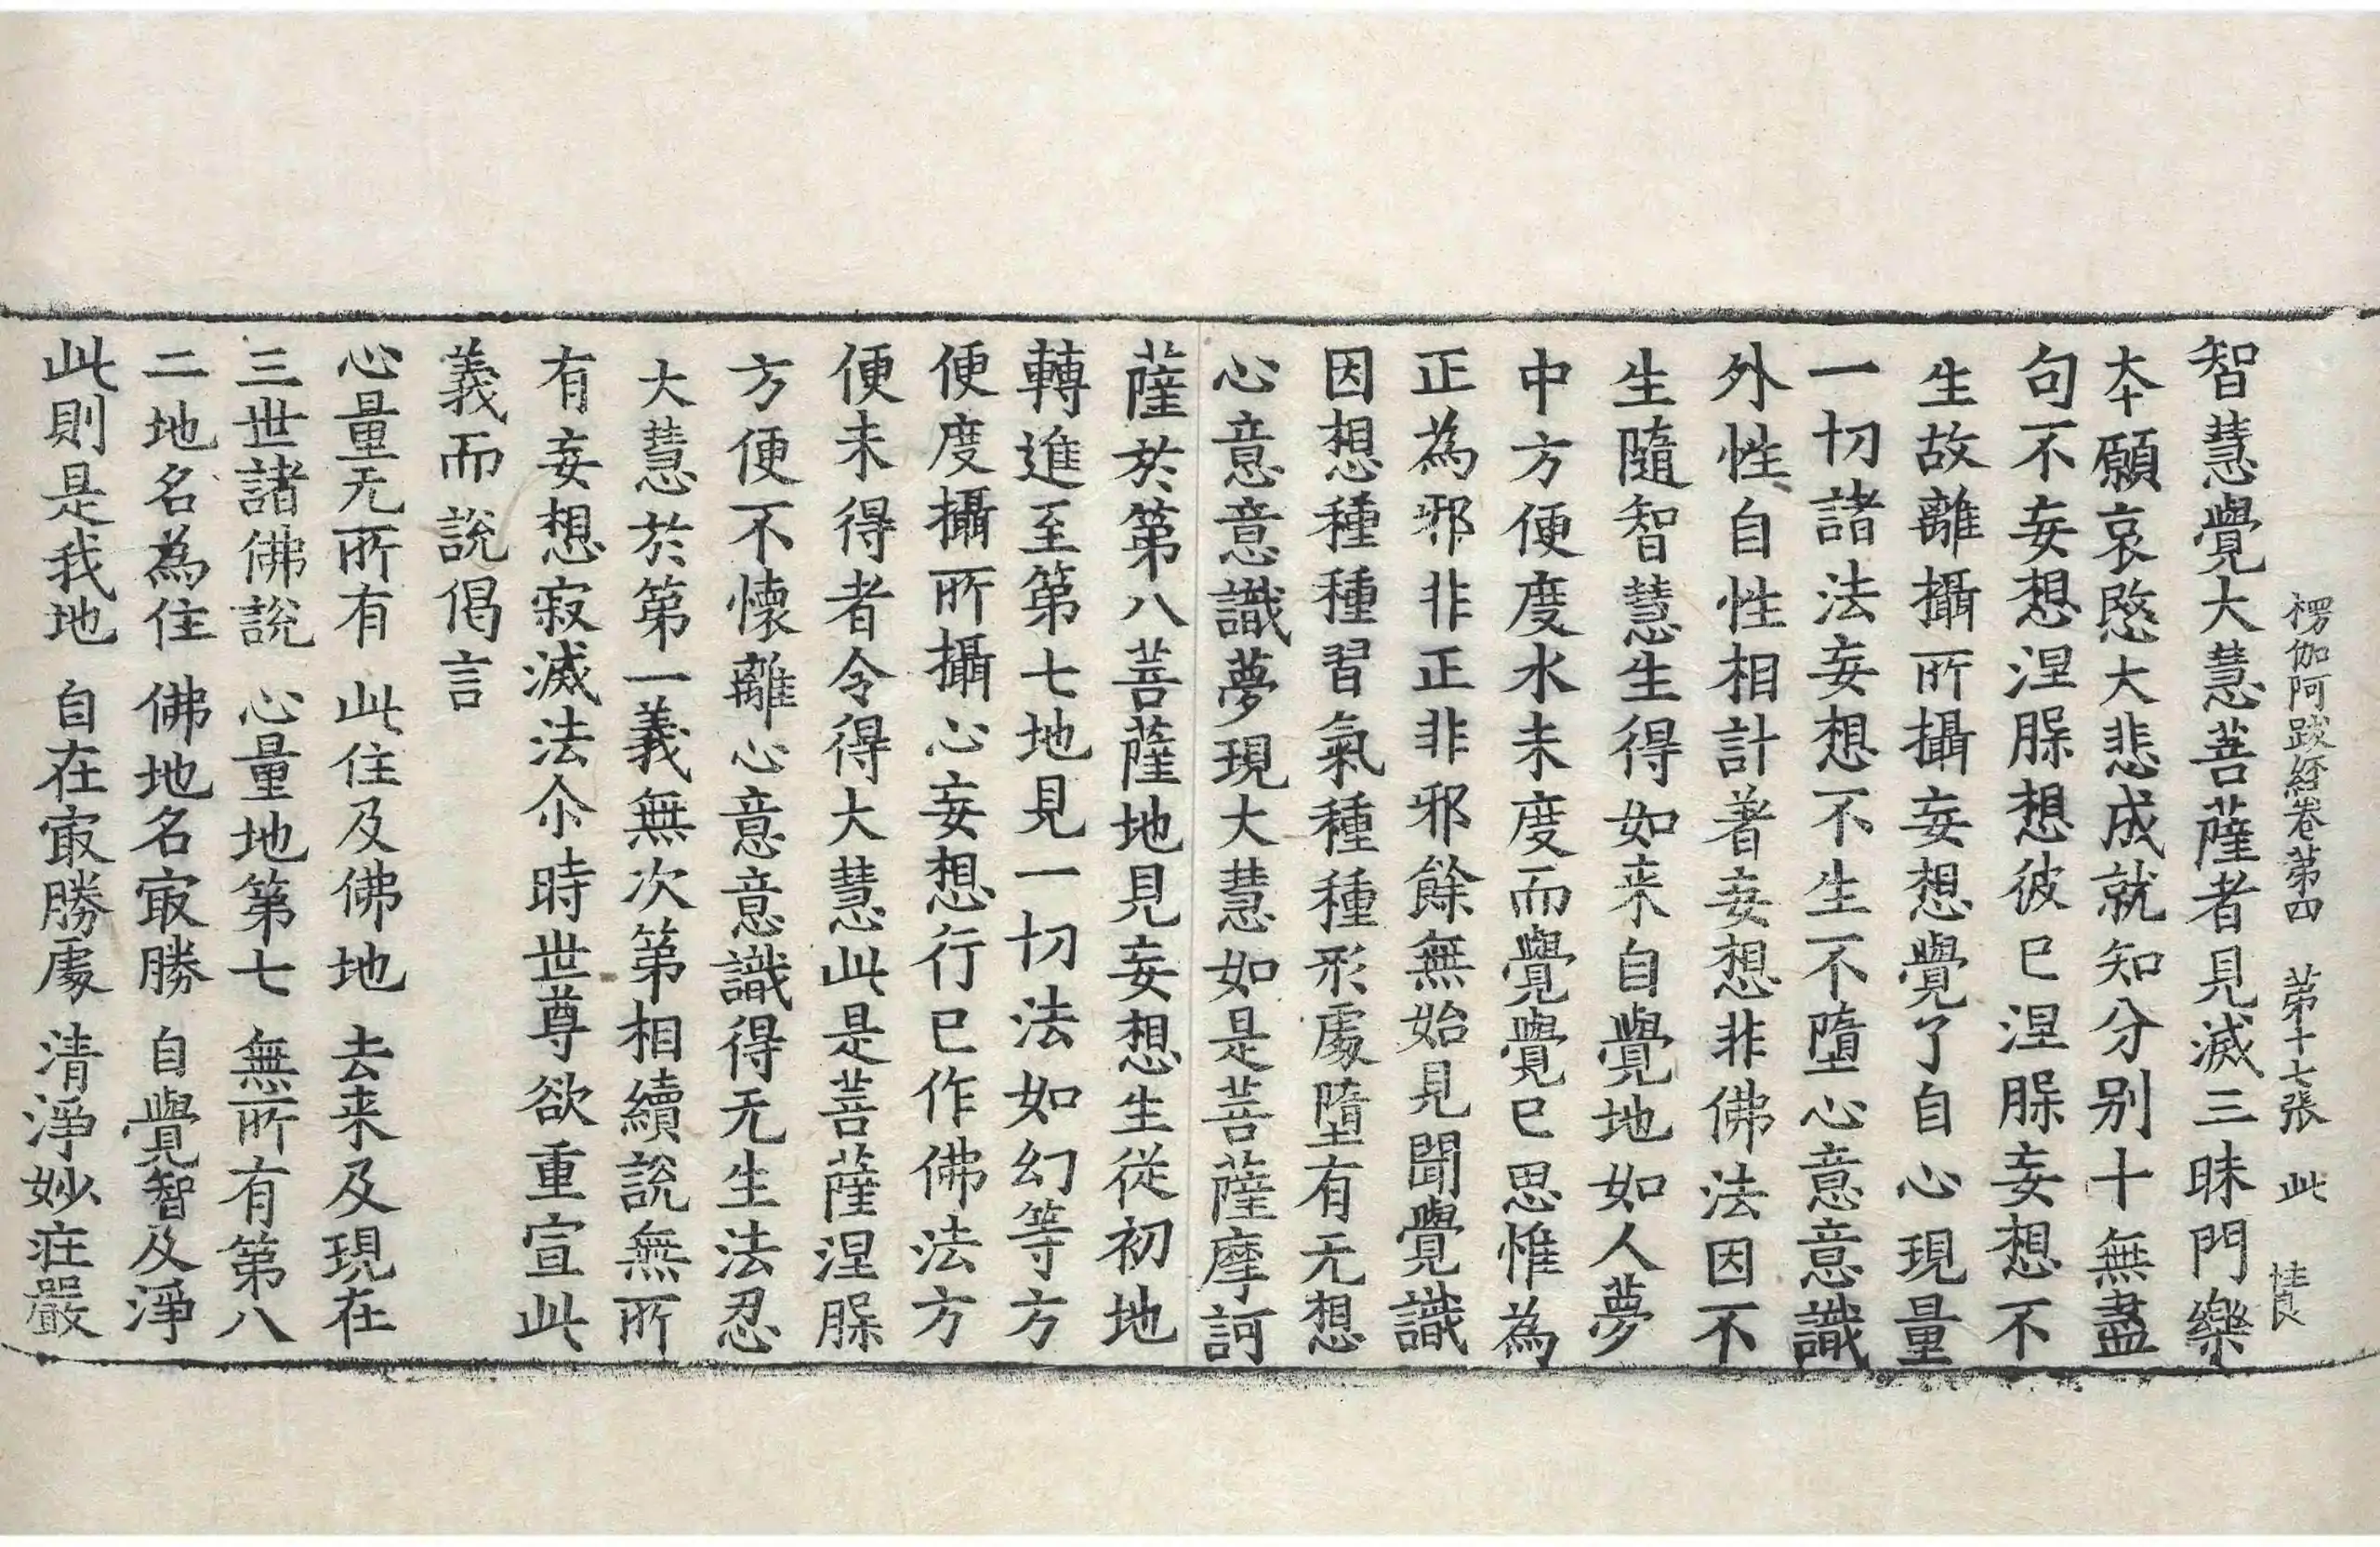 楞伽阿跋經卷第四　第十七張　此
智慧覺大慧菩薩者見滅三昧門樂
本願哀愍大悲成就知分别十無盡
句不妄想涅脲想彼已涅脲妄想不
生故離攝所攝妄想覺了自心現量
一切諸法妄想不生不墮心意意識
外性自性相計著妄想非佛法因不
生隨智慧生得如来自覺地如人夢
中方便度水未度而覺覺已思惟為
正為邪非正非邪餘無始見聞覺識
因想種種習氣種種形處墮有无想
心意意識夢現大慧如是菩薩摩訶
薩於第八菩薩地見妄想生從初地
轉進至第七地見一切法如幻等方
便度攝所攝心妄想行已作佛法方
便未得者令得大慧此是菩薩涅脲
方便不懷離心意意識得无生法忍
大慧於第一義無次第相續說無所
有妄想寂滅法尒時世尊欲重宣此
義而說偈言
心量无所有　此住及佛地　去来及現在
三世諸佛說　心量地第七　無所有第八
二地名為住　佛地名㝡勝　自覺智及淨
此則是我地　自在㝡勝處　清淨妙莊嚴